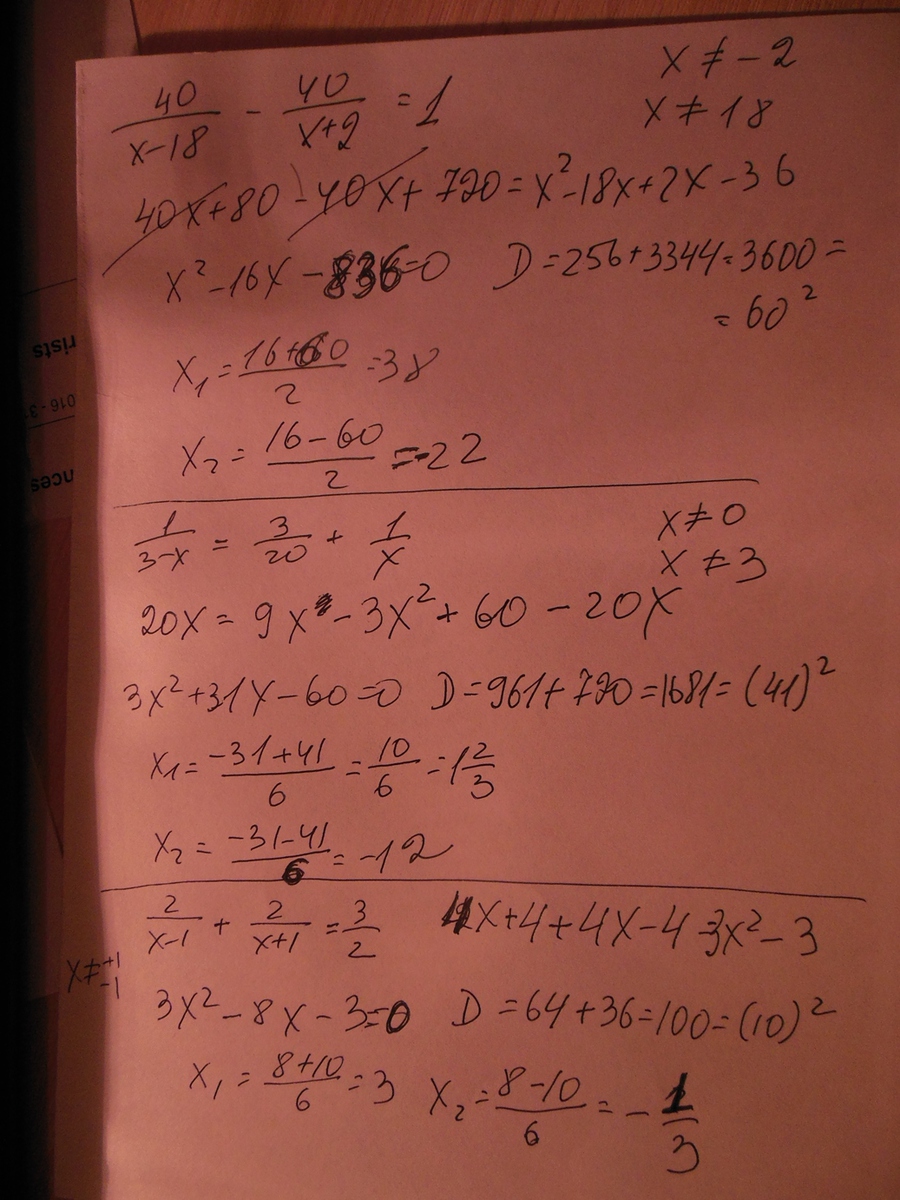 40/(x-18) - 40/(x+2) = 1
x ≠ -2
x ≠ 18
40x+80 - 40x + 720 = x²-18x+2x-36
x²-16x-836=0
D=256+3344=3600=
=60²
x₁ = (16+60)/2 = 38
x₂ = (16-60)/2 = -22
1/(3-x) = 3/20 + 1/x
x ≠ 0
x ≠ 3
20x = 9x - 3x² + 60 - 20x
3x²+31x-60=0 D=961+720=1681=(41)²
x₁ = (-31+41)/6 = 10/6 = 1 2/3
x₂ = (-31-41)/6 = -12
2/(x-1) + 2/(x+1) = 3/2
4x+4+4x-4 3x²-3
x≠ +1
-1
3x²-8x-3=0 D=64+36=100=(10)²
x₁ = (8+10)/6 = 3 x₂ = (8-10)/6 = -1/3
rists
016 - 3
nces